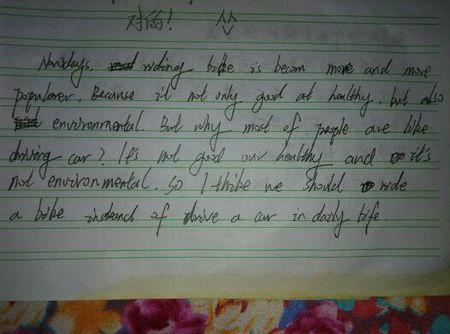 对的!
Nowdays, riding bike is becom more and more
popularer. Because it not only good at healthy, but also
environmental. But why most of people are like
driving car? It's not good our healthy and it's
not environmental. So I thike we should ride
a bike instead of drive a car in daily life.